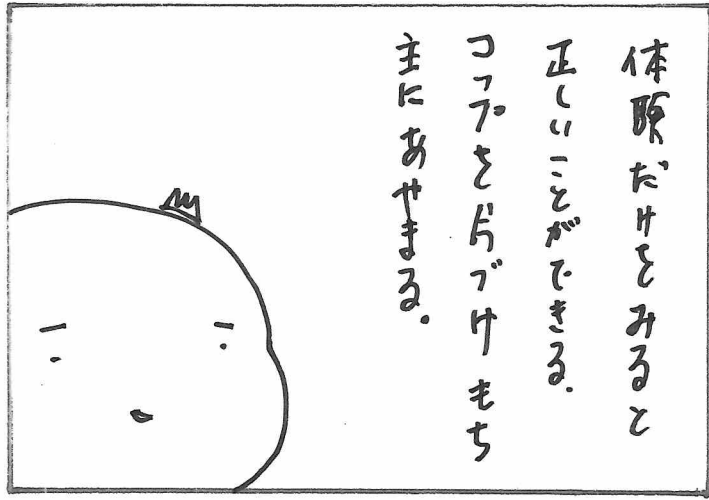 体験だけをみると
正しいことができる.
コップを片づけ もち
主に あやまる.